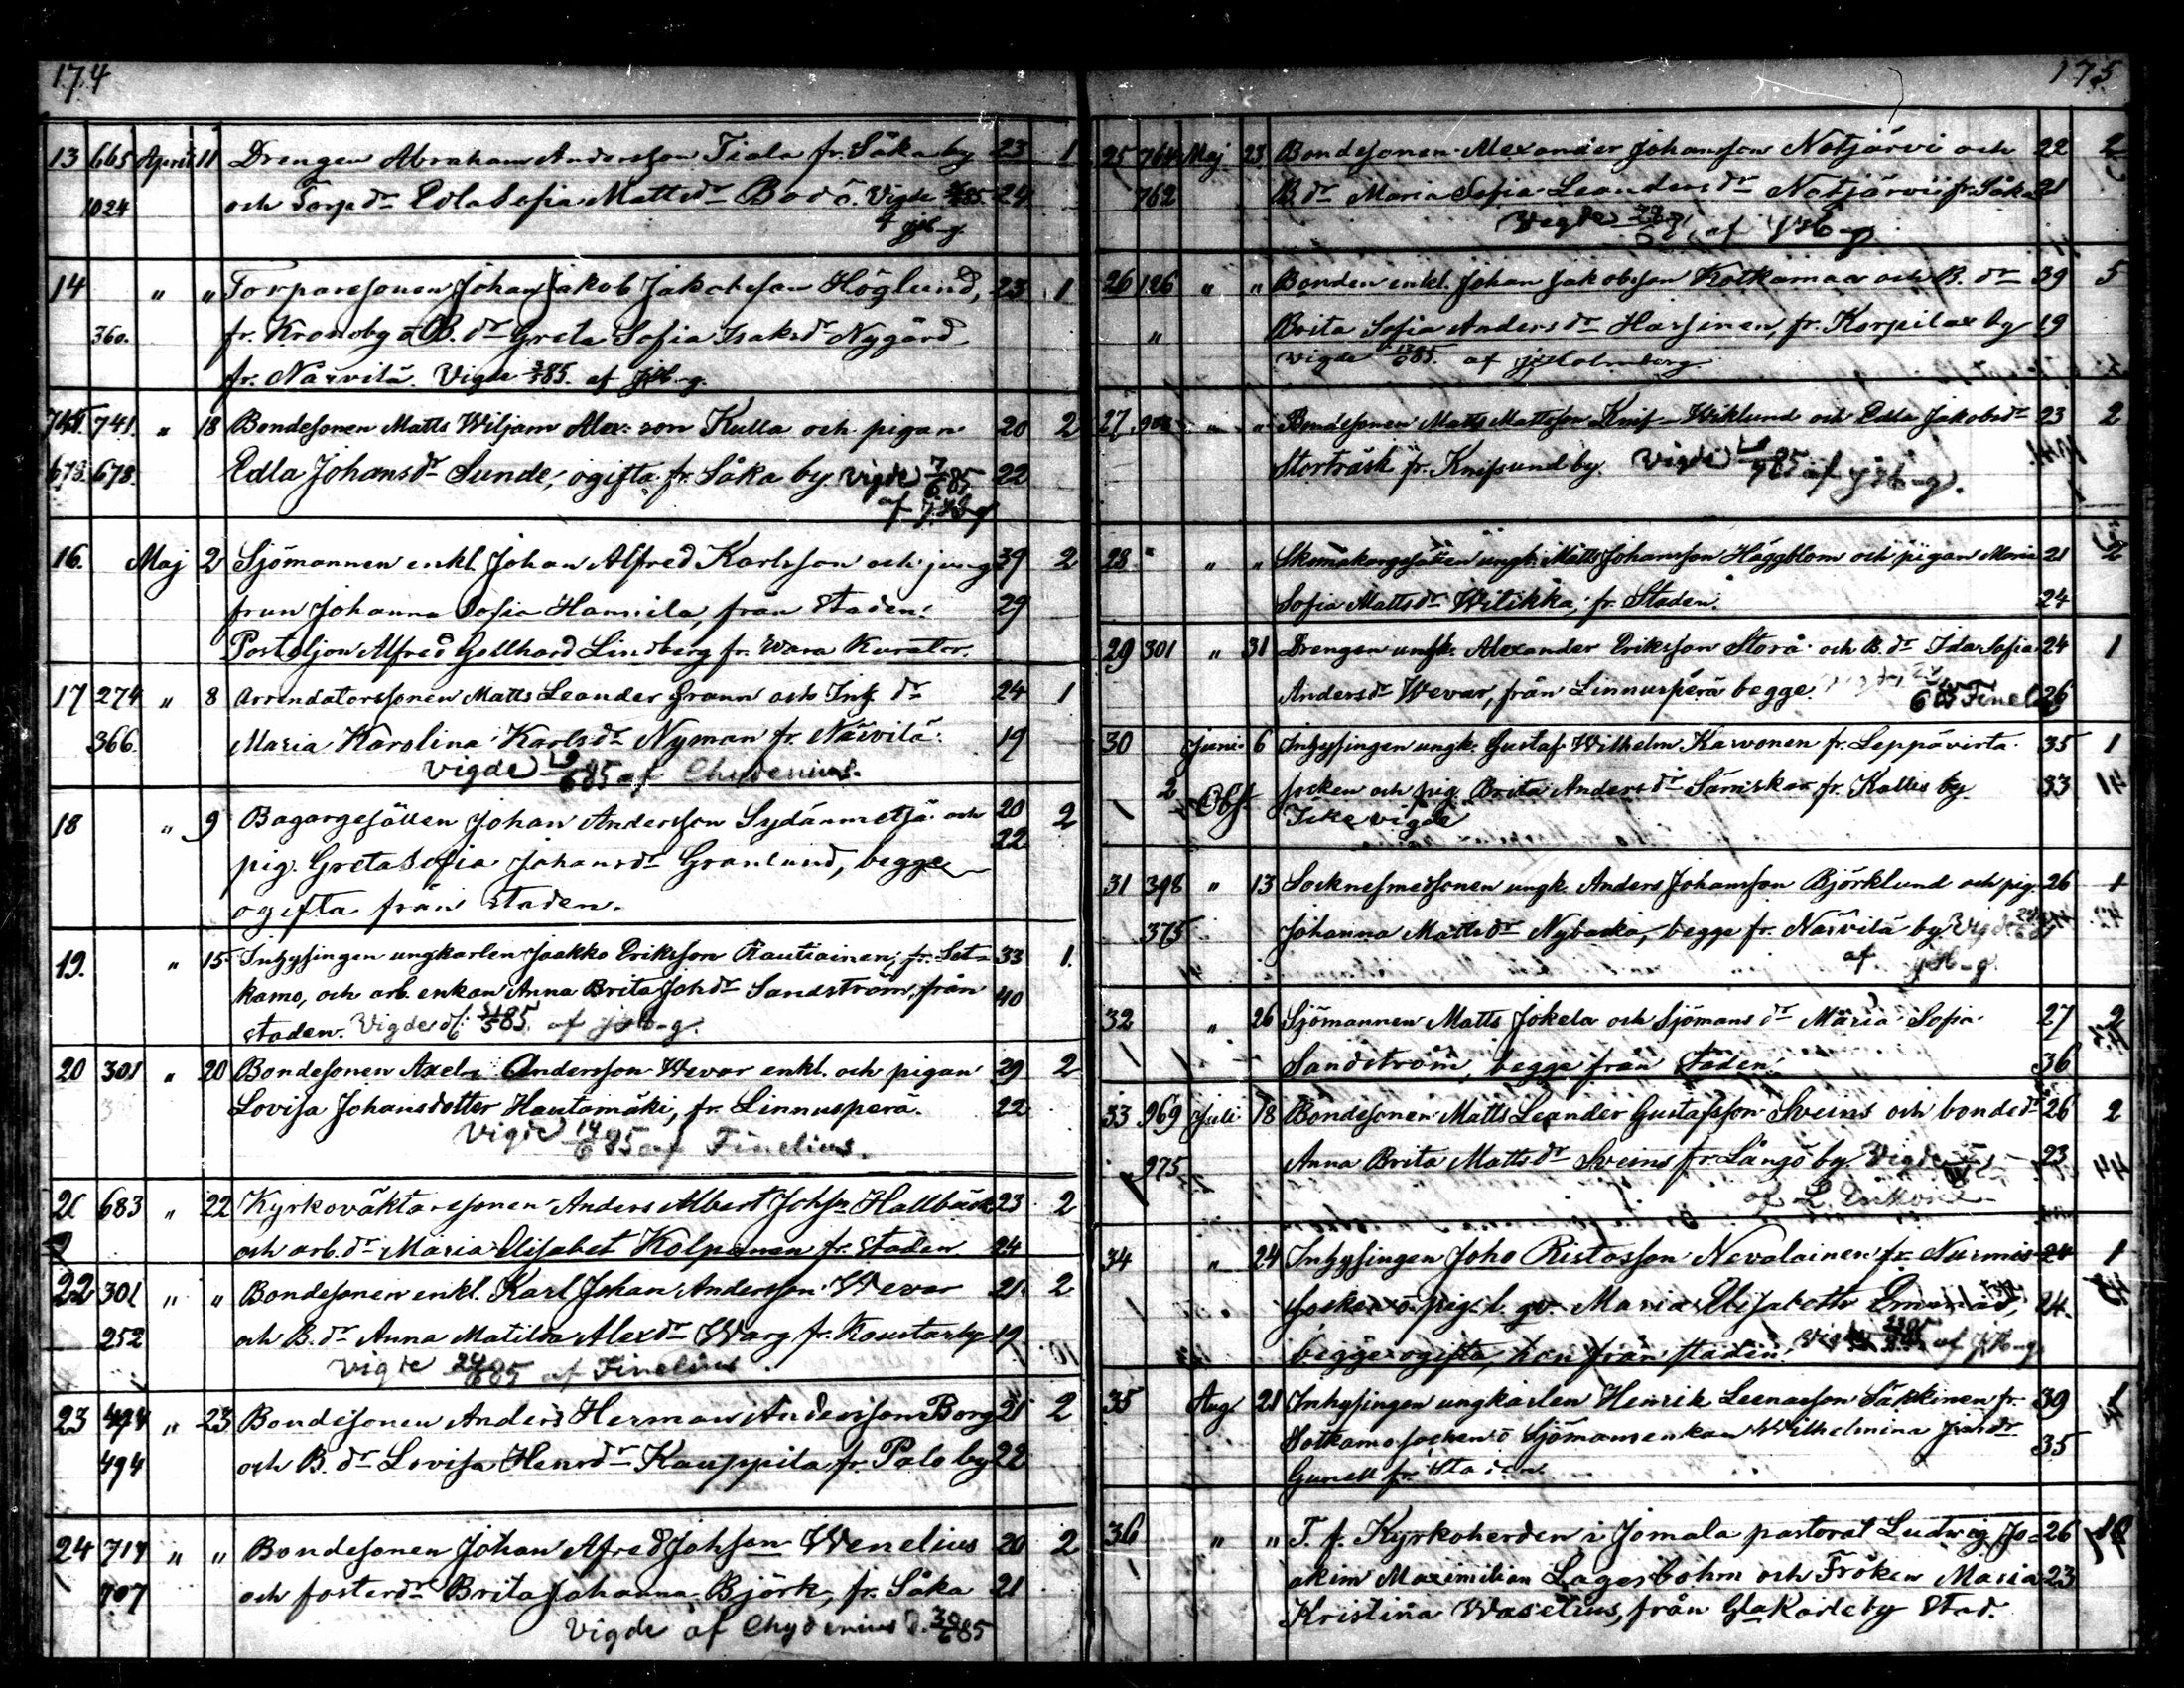 174
13 665 April 11 Drengen Abraham Andersson Tiala fr. Såka by 23 1
1024 och Torpdr Edla Sofia Mattsdr Bodö. Vigde 85. 24
af JHb-g
14 " " Torparesonen Johan Jakob Jakobsson Höglund, 23 1
360. fr. Kronoby o B. dr Greta Sofia Isaksdr Nygård
fr. Närvilä. Vigde 85. af JHb-g.
741. " 18 Bondesonen Matts Wiljam Alex:son Kulla och pigan 20 2
673. 678. Edla Johansdr Sunde, ogifta fr. Såka by. Vigde 7/6 85. 22
af J.Hb-g
16. Maj 2 Sjömannen enkl. Johan Alfred Karlsson och jung 39 2
frun Johanna Sofia Hannila, från staden. 29
Postiljon Alfred Gellhard Lindberg fr. Wasa Kurator.
17 274 " 8 Arrendatorssonen Matts Leander Grann och Inh. dr 24 1
366. Maria Karolina Karlsdr Nyman fr. Närvilä. 19
Vigde 85 af Chydenius.
18 " 9 Bagaregesällen Johan Andersson Sydänmetsä och 20 2
pig. Greta Sofia Johansdr Granlund, begge 22
ogifta från staden.
19. " 15 Inhysingen ungkarlen Jaakko Eriksson Rautiainen, fr. Sot- 33 1.
kamo, och arb. enkan Anna Brita Johdr Sandström, från 40
staden. Vigde d. 31/5 85. af JHb-g.
20 301 " 20 Bondesonen Axel Andersson Wevar enkl. och pigan 29 2
Lovisa Johansdotter Hautamäki, fr. Linnusperä. 22
Vigde 14/6 85 af Finelius.
21 683 " 22 Kyrkoväktaresonen Anders Albert Johsn Hallbäck 23 2
och arb. dr Maria Elisabet Kolpanen fr. staden 24
22 301 " " Bondesonen enkl. Karl Johan Andersson Wevar 21. 2
252 och B. dr Anna Matilda Alexdr Warg fr. Kaustarby 19
Vigde 24/6 85 af Finelius.
23 494 " 23 Bondesonen Anders Herman Andersson Borg 21 2
494 och B. dr Lovisa Henrdr Kauppila fr. Palo by 22
24 719 " " Bondesonen Johan Alfred Johsson Wenelius 20 2
707 och fosterdr Brita Johanna Björk, fr. Såka 21
Vigde af Chydenius d. 30/6 85
175
25 764 Maj 23 Bondesonen Alexander Johansson Notjärvi och 22 2
762 B. dr Maria Sofia Leandersdr Notjärvi fr. Såka 21
Vigde af JHb-g
26 126 " " Bonden enkl. Johan Jakobsson Kotkamaa och B. dr 39 5
" Brita Sofia Andersdr Hassinen, fr. Korpilax by 19
Vigde 85. af JHolmberg.
27 " " Bondesonen Matts Mattsson Knif-Wiklund och Edla Jakobsdr 23 2
Storträsk fr. Knifsund by. Vigde 85 af JHb-g.
28 " " Skomakaregesällen ungk. Matts Johansson Häggblom och pigan Maria 21 2
Sofia Mattsdr Witikka, fr. Staden. 24
29 301 " 31 Drengen ungk. Alexander Eriksson Storå och B. dr Ida Sofia 24 1
Andersdr Wevar, från Linnusperä begge. 26
30 Juni 6 Inhysingen ungk. Gustaf Wilhelm Karvonen fr. Leppävirta 35 1
2 Obs. socken och pig. Brita Andersdr Särniskar fr. Kallis by. 33
Icke vigde
31 398 " 13 Socknesmedsonen ungk. Anders Johansson Björklund och pig. 26 1
375 Johanna Mattsdr Nybacka, begge fr. Närvilä by. Vigde
af JHb-g.
32 " 26 Sjömannen Matts Jokela och Sjömans dr Maria Sofia 27 2
Sandström, begge från Staden. 36
33 969 Juli 18 Bondesonen Matts Leander Gustafsson Sveins och bondedr 26 2
975 Anna Brita Mattsdr Sveins fr Långö by. Vigde 23
af L.
34 " 24 Inhysingen Joho Ristosson Nevalainen fr. Nurmis 24 1
socken o pig. Maria Elisabeth 24.
begge ogifta, hon från staden. Vigde af JHb-g
35 Aug. 21 Inhysingen ungkarlen Henrik Leenasson Säkkinen fr. 39 1
Sotkamo socken o Sjömansenkan Wilhelmina Johdr 35
Gunell fr. Staden
36 " " T. f. Kyrkoherden i Jomala pastorat Ludvig Jo- 26
akim Maximilian Lagerbohm och Fröken Maria 23
Kristina Wasetius, från Glakarleby Stad.